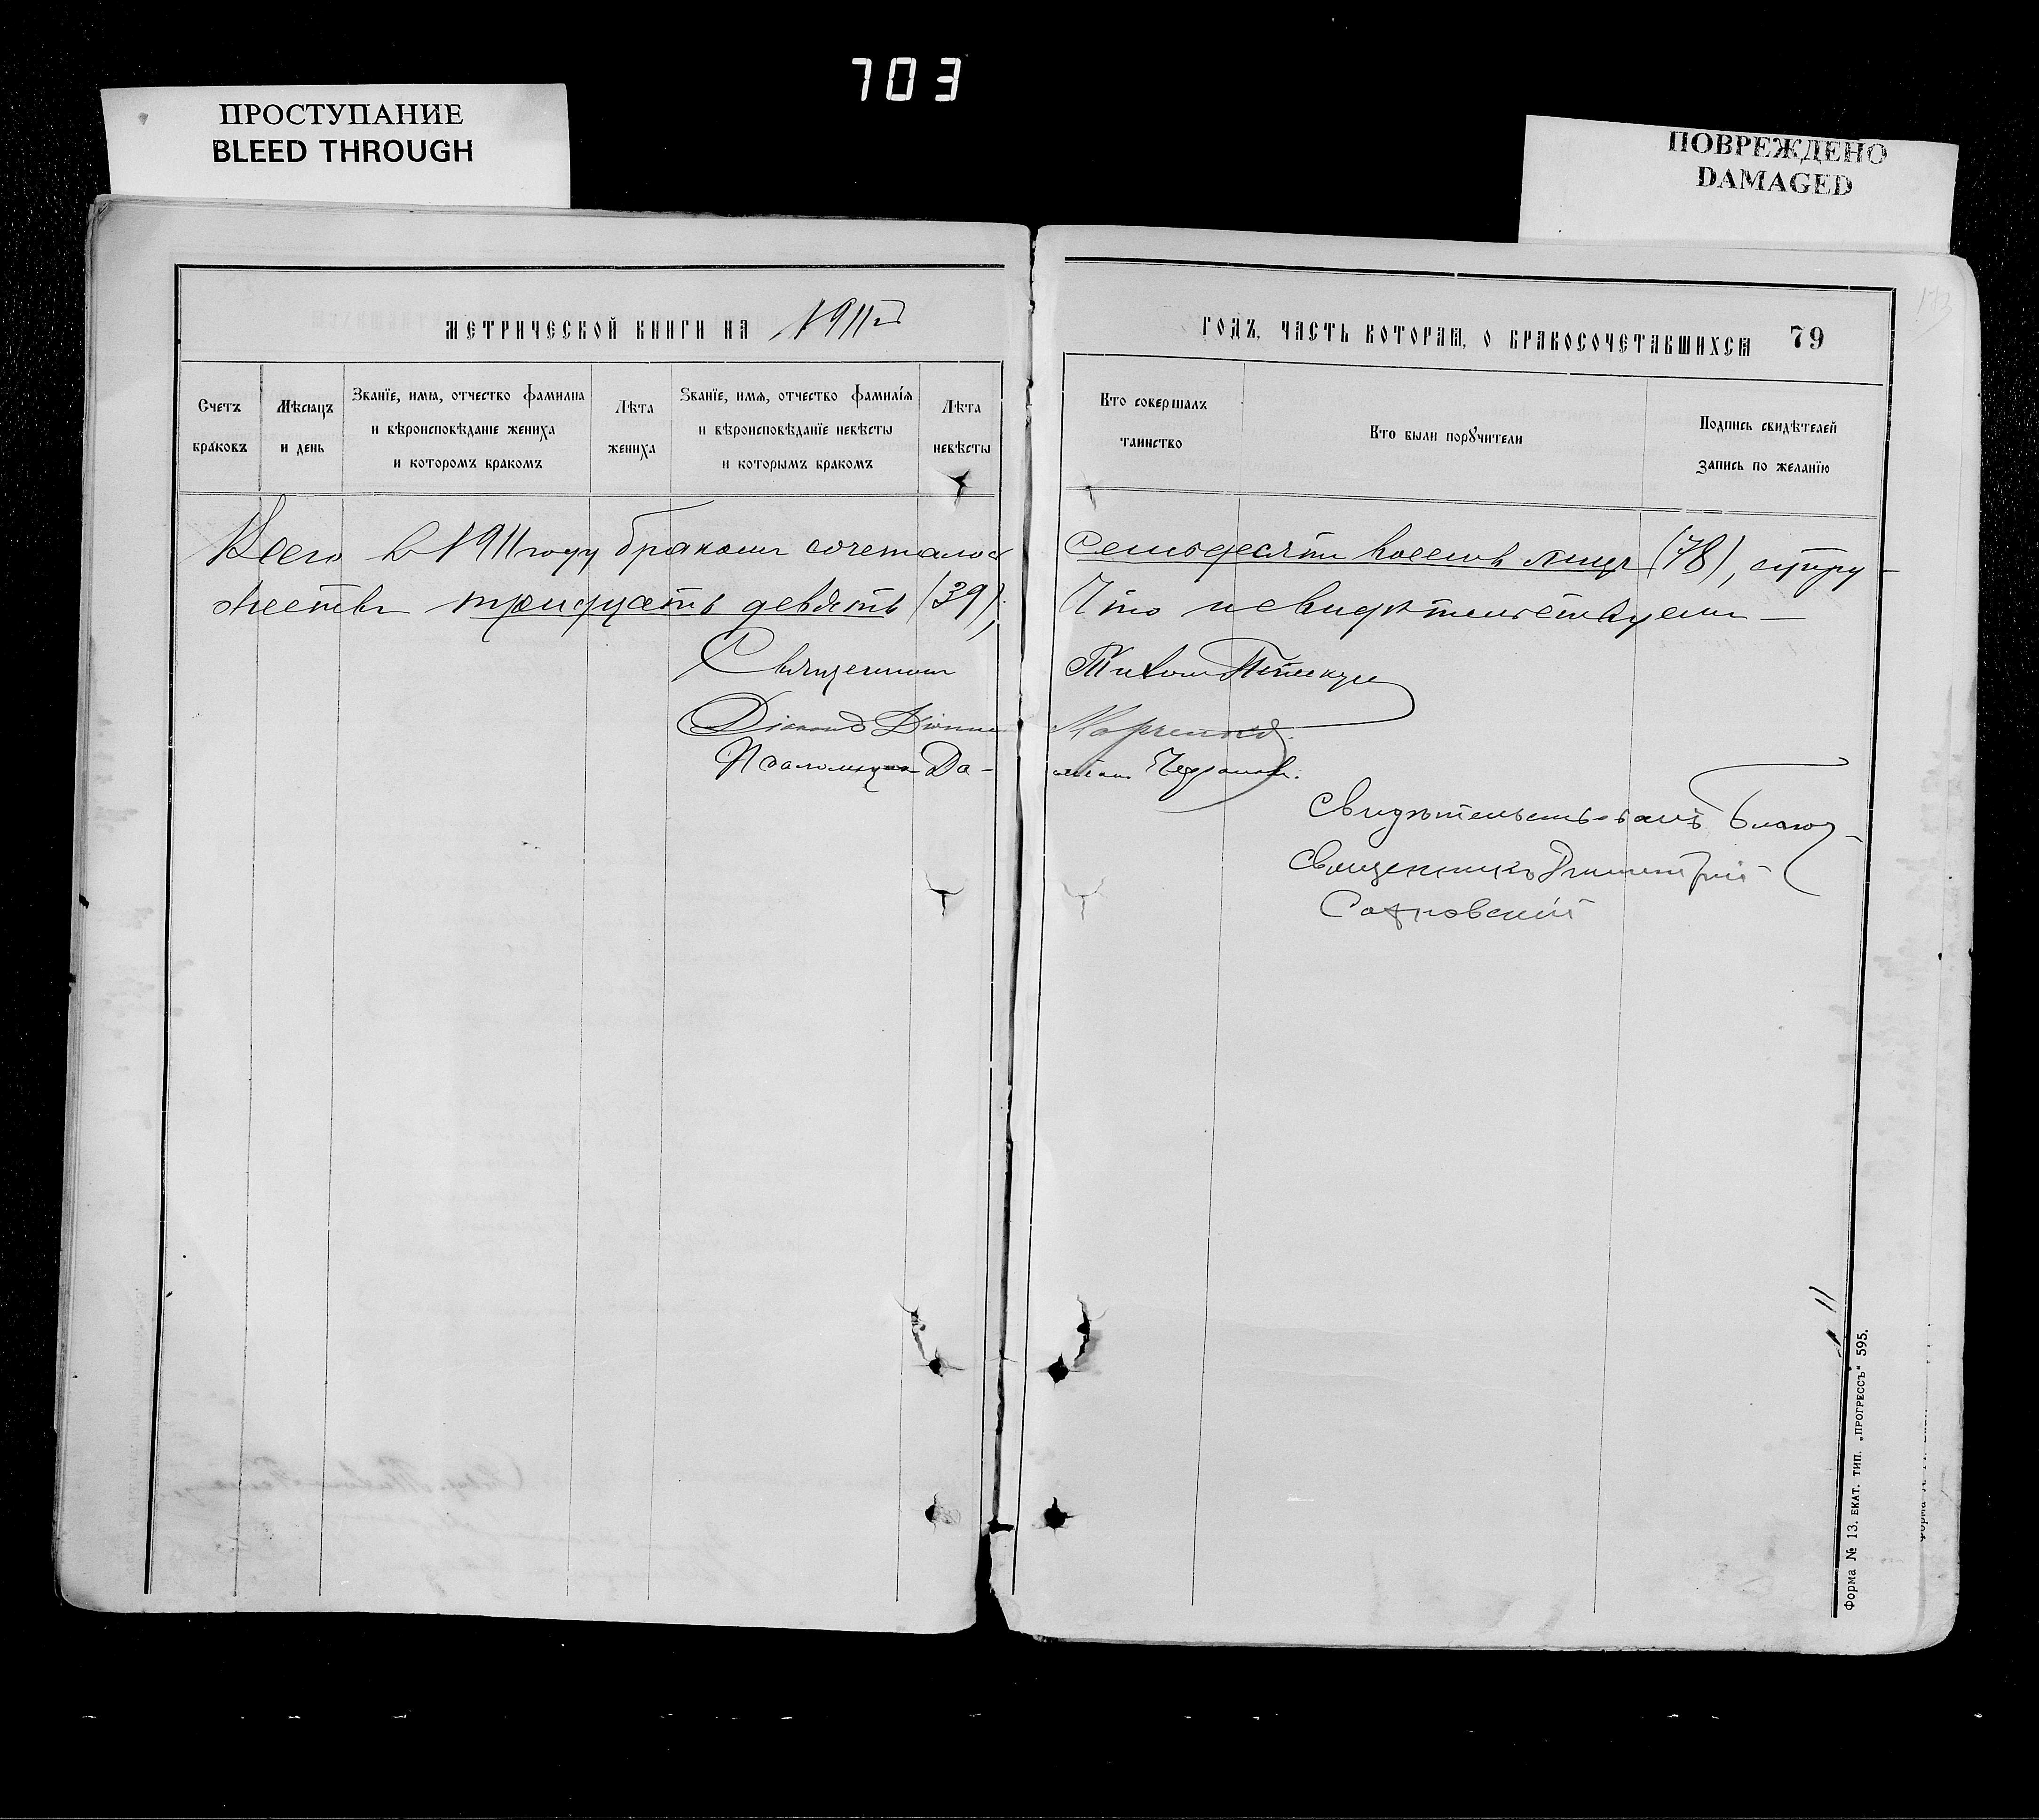 703
ПРОСТУПАНИЕ
BLEED THROUGH
ПОВРЕЖДЕНО
DAMAGED
МЕТРИЧЕСКОЙ КНИГИ НА 1911й
ГОДЪ, ЧАСТЬ КОТОРАЯ, О БРАКОСОЧЕТАВШИХСЯ 79
Счетъ браковъ
Мѣсяцъ и день
Званїе, имя, отчество фамилиа и вѣроисповѣданіе жениха и которомъ бракомъ
Лѣта жениха
Званїе, имя, отчество фамилїя и вѣроисповѣданїе невѣсты и которымъ бракомъ
Лѣта невѣсты
Кто совершалъ таинство
Кто были поручители
Подпись свидѣтелей запись по желанїю
Всего в 1911 году браком сочеталось семьдесятъ восемь лицъ (78), супру-
жествъ тридцать девять (39), что и свидѣтельствуемъ —
Священникъ Тихонъ
Діаконъ Марченко.
Псаломщикъ Да-
Свидѣтельствовалъ Благоч-
Священникъ Димитрій
11
Форма № 13. ЕКАТ. ТИП. „ПРОГРЕССЪ“ 595.